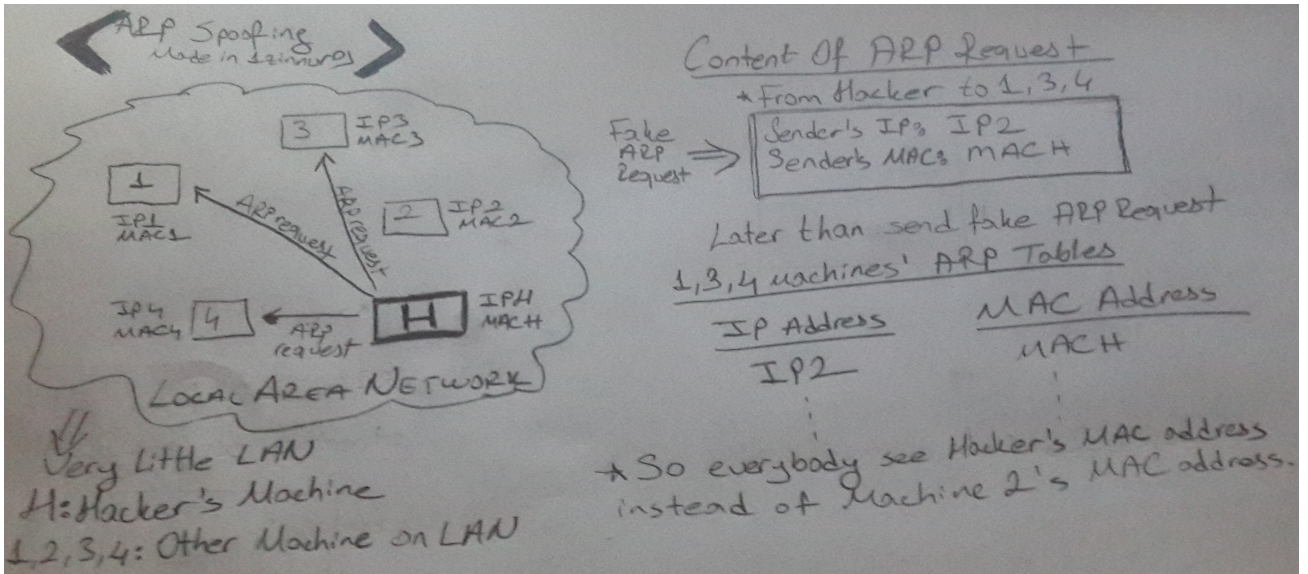 ARP Spoofing
Made in 1zinnur9
3
IP3
MAC3
1
IP1
MAC1
2
IP2
MAC2
ARP request
ARP request
IP4
MAC4
4
ARP
request
H
IPH
MACH
LOCAL AREA NETWORK
Very Little LAN
H: Hacker's Machine
1,2,3,4: Other Machine on LAN
Content Of ARP Request
* From Hacker to 1,3,4
Fake
ARP
Request
Sender's IP: IP2
Sender's MAC: MACH
Later than send fake ARP Request
1,3,4 machines' ARP Tables
IP Address
MAC Address
IP2
MACH
* So everybody see Hacker's MAC address
instead of Machine 2's MAC address.